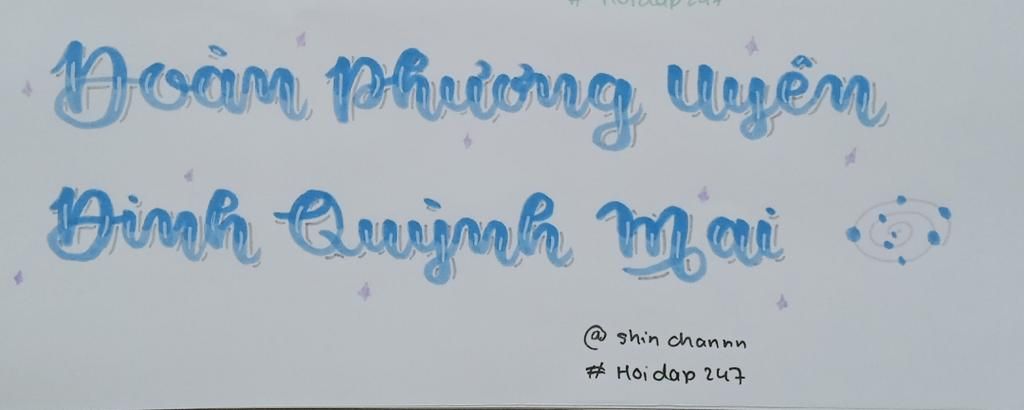 # Hoidap247
Đoàn Phương Uyên
Đinh Quỳnh Mai
@ shin channn
# Hoidap 247